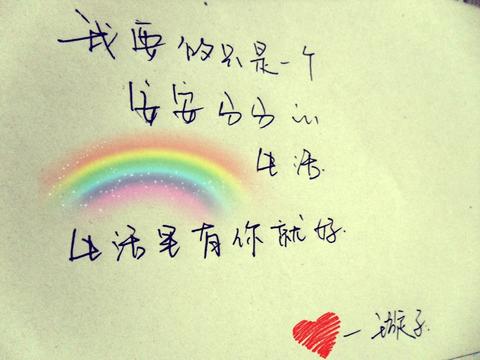 我要的只是一个
安安分分的
生活.
生活里有你就好.
—子.